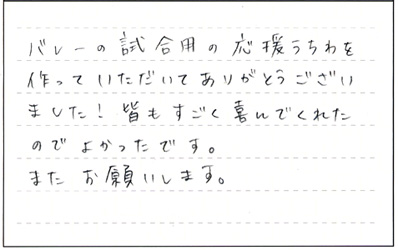 バレーの試合用の応援うちわを
作っていただいてありがとうござい
ました！皆もすごく喜んでくれた
のでよかったです。
またお願いします。